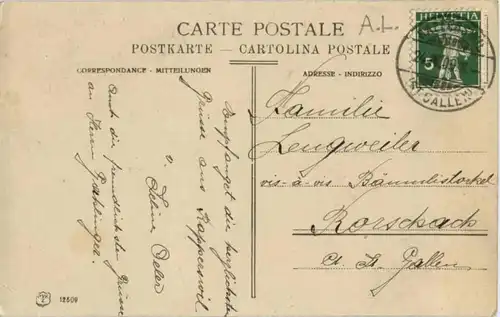 CARTE POSTALE
A.L.
POSTKARTE — CARTOLINA POSTALE
CORRESPONDANCE - MITTEILUNGEN
ADRESSE - INDIRIZZO
HELVETIA
5
(ST. GALLEN)
Familie
Lengweiler
vis-à-vis Bäumlistockel
Rorschach
Ct. St. Gallen
Empfanget die herzlichsten
Grüsse aus Rapperswil
v. Seline
Auch die freundlichsten Grüsse
an Herrn
12509